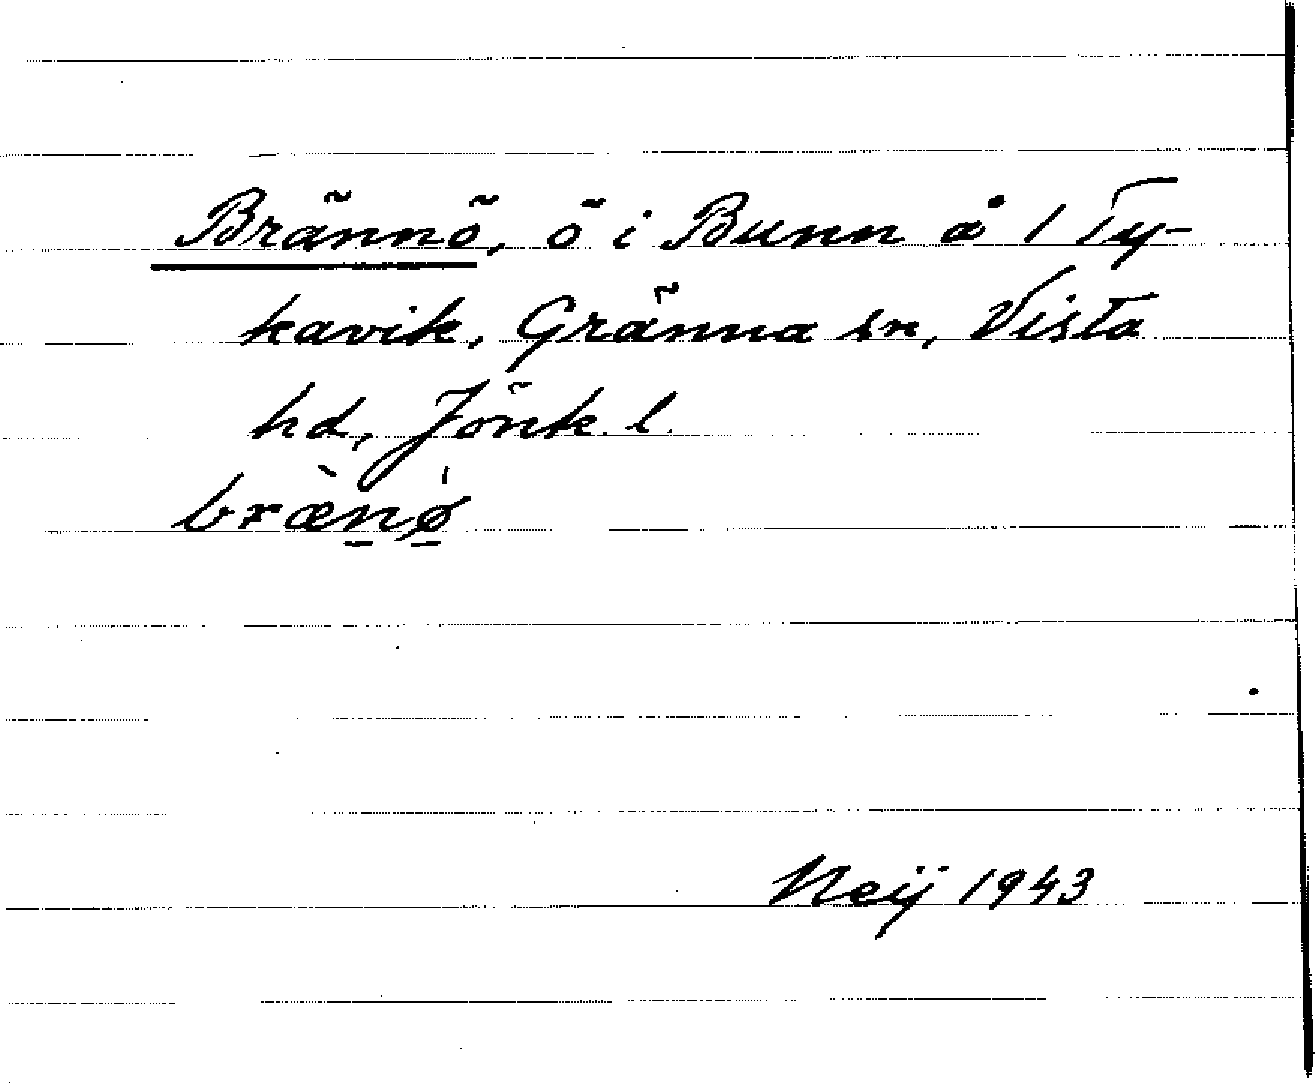 Brännö, ö i Bunn å 1 Ty-
kavik, Gränna sn, Vista
hd, Jönk. l.
bræ̀nø̍
Neij 1943